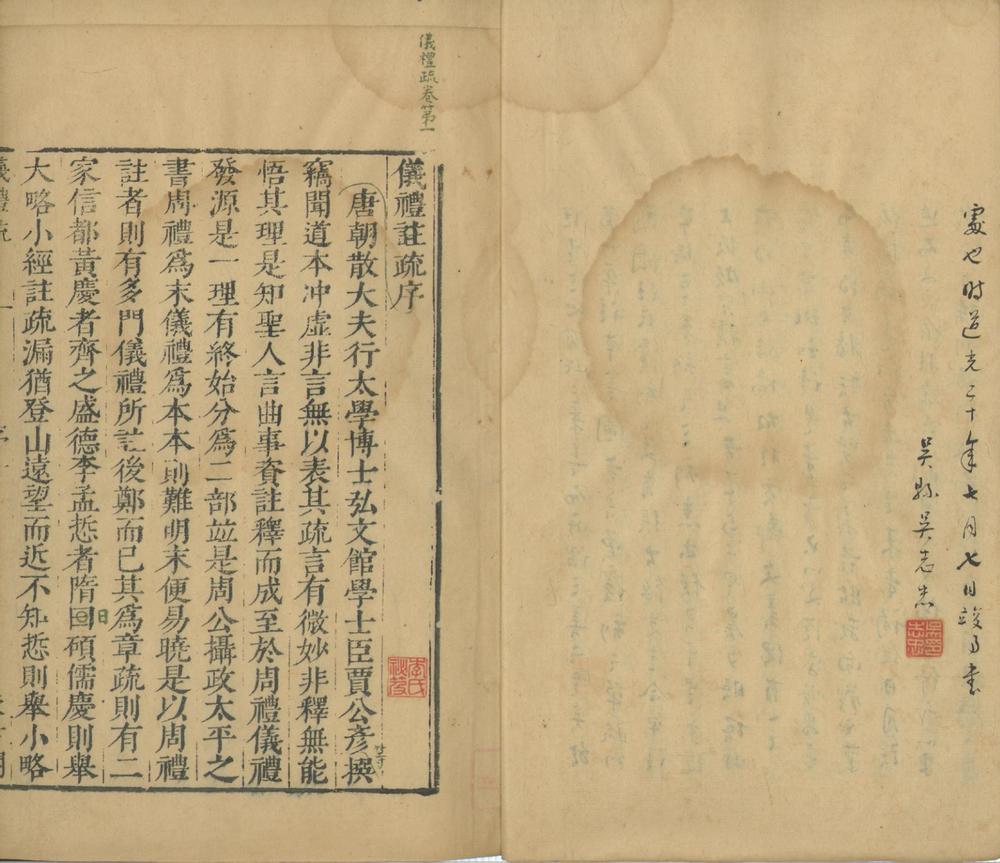 處也时道光二十年七月七日竣事書
吳縣吳志忠
吳印志忠
儀禮疏卷第一
儀禮註疏序
唐朝散大夫行太學博士弘文館學士臣賈公彥撰
竊聞道本冲虛非言無以表其疏言有微妙非釋無能
悟其理是知聖人言曲事資註釋而成至於周禮儀禮
發源是一理有終始分爲二部竝是周公攝政太平之
書周禮爲末儀禮爲本本則難明末便易曉是以周禮
註者則有多門儀禮所註後鄭而已其爲章疏則有二
家信都黃慶者齊之盛德李孟悊者隋曰碩儒慶則舉
大略小經註疏漏猶登山遠望而近不知悊則舉小略